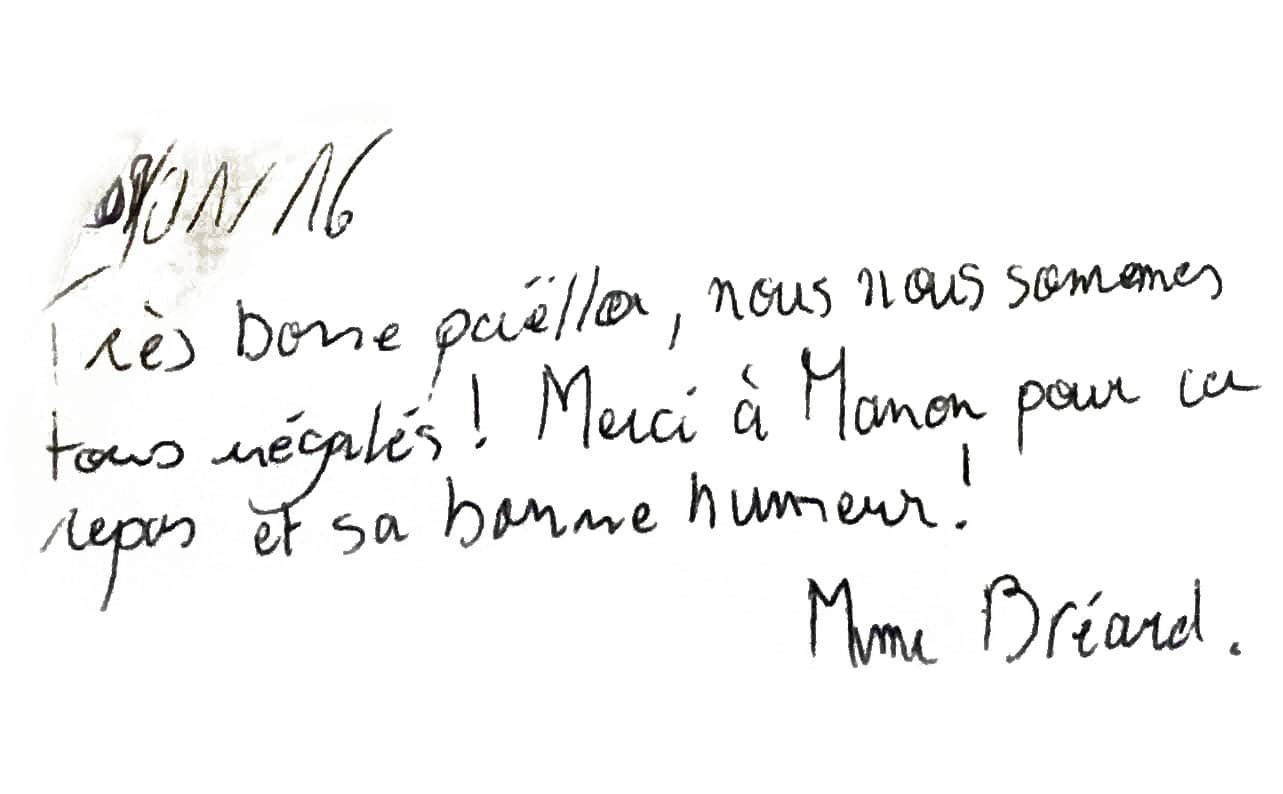 /01/16
Très bonne paëlla, nous nous sommes
tous régalés ! Merci à Manon pour ce
repas et sa bonne humeur !
Mme Bréard.